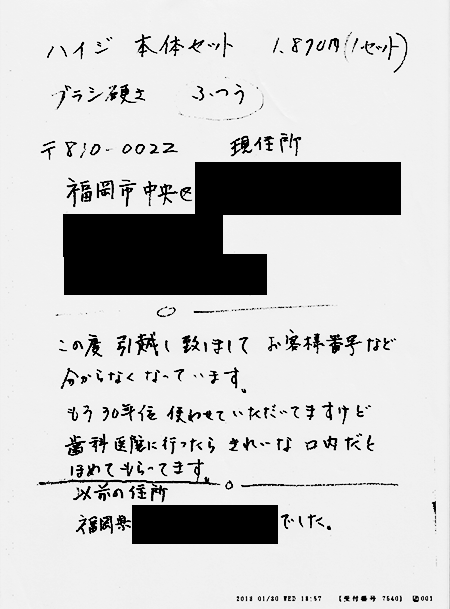 ハイジ 本体セット 1,890円(1セット)
ブラシ硬さ ふつう
〒810-0022 現住所
福岡市中央区
この度 引越し致しまして お客様番号など
分からなくなっています。
もう30年位 使わせていただいてますけど
歯科医院に行ったら きれいな口内だと
ほめてもらってます。
以前の住所
福岡県 でした。
2013 01/30 WED 18:57 【受付番号 7540】 001